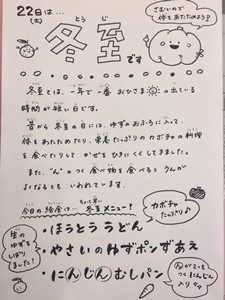 22日は…
(木)
とうじ
冬至
です
さむいので
体をあたためよう♪
冬至とは、一年で一番 お ひさま の出ている
時間が短い日です。
昔から冬至の日には、ゆずのおふろに入って
体をあたためたり、栄養たっぷりのカボチャの料理
を食べたりして かぜをひきにくくしてきました。
また、"ん"のつく食べ物を食べると うんが
よくなるとも いわれています。
今日の給食は… 冬至メニュー!
・ほうとううどん
カボチャ
たっぷり♪
・やさいのゆずポンずあえ
生の
ゆずを
しぼり
ました!
・にんじんむしパン
んが2こも
つくにんじん
入り